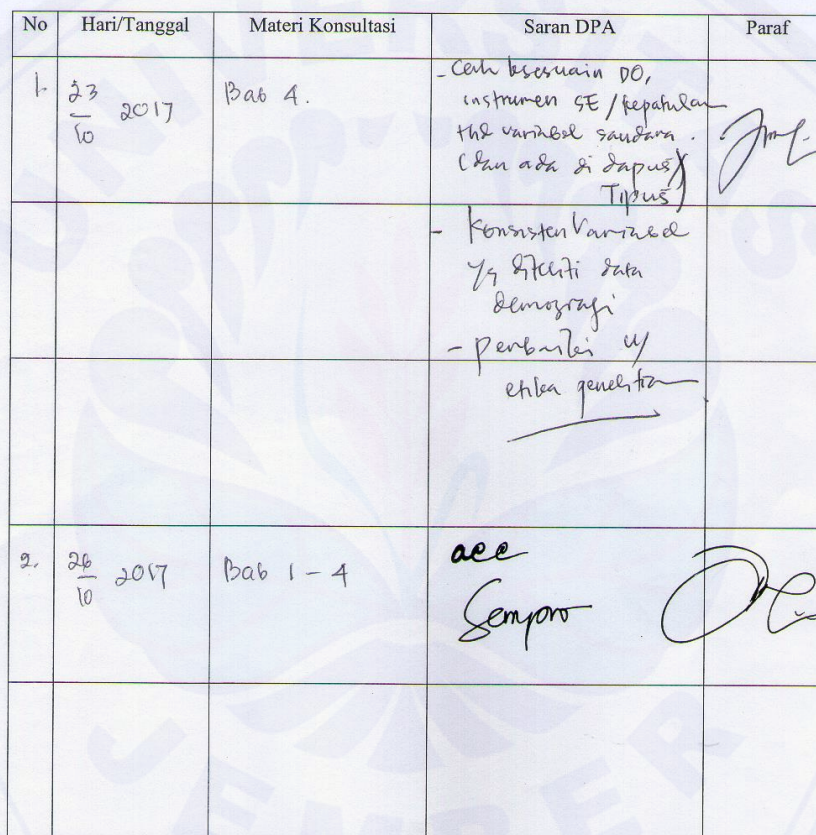 No Hari/Tanggal Materi Konsultasi Saran DPA Paraf
1. 23/10 2017 Bab 4. - Cek DO,
instrumen SE/kepatuhan
thd variabel saudara.
(dan ada di dapus)
Tipus
- Konsisten Variabel
yg diteliti data
demografi
- perbaiki
etika penelitian
2. 26/10 2017 Bab 1 - 4 acc
Sempro
UNIVERSITAS
JEMBER